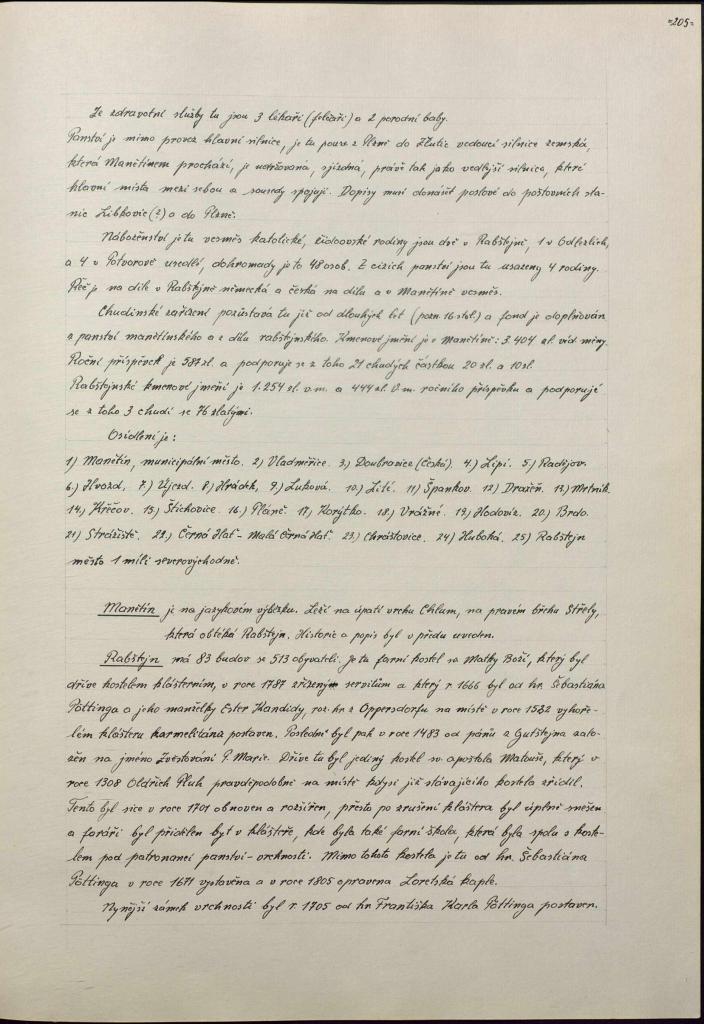 =205=
Ze zdravotní služby tu jsou 3 lékaři (felčaři) a 2 porodní baby.
Panství je mimo provoz hlavní silnice, je tu pouze z Plzně do Žlutic vedoucí silnice zemská,
která Manětínem prochází, je udržovaná, sjízdná, právě tak jako vedlejší silnice, které
hlavní místa mezi sebou a sousedy spojují. Dopisy musí donášet poslové do poštovních sta-
nic Libkovic (?) a do Plzně.
Náboženství je tu vesměs katolické, židovské rodiny jsou dvě v Rabštejně, 1 v Odlezlích,
a 4 v Potvorově usedlé, dohromady je to 48 osob. Z cizích panství jsou tu usazeny 4 rodiny.
Řeč je na díle v Rabštejně německá a česká na dílu a v Manětíně vesměs.
Chudinské zařízení pozůstává tu již od dlouhých let (pozn. 16 stol.) a fond je doplňován
z panství manětínského a z dílu rabštejnského. Kmenové jmění je v Manětíně: 3.404 zl. víd. měny.
Roční příspěvek je 587 zl. a podporuje se z toho 21 chudých částkou 20 zl. a 10 zl.
Rabštejnské kmenové jmění je 1.254 zl. v.m. a 444 zl. v.m. ročního příspěvku a podporují
se z toho 3 chudí se 76 zlatými.
Osídlení je:
1) Manětín, municipální město. 2) Vladměřice. 3) Doubravice (Česká). 4) Lipí. 5) Radějov.
6) Hvozd. 7) Újezd. 8) Hrádek. 9) Luková. 10) Lité. 11) Špankov. 12) Dražeň. 13) Mrtník.
14) Křečov. 15) Štichovice. 16) Pláně. 17) Korýtko. 18) Vrážné. 19) Hodovíz. 20) Brdo.
21) Strážiště. 22) Černá Hať - Malá Černá Hať. 23) Chrástovice. 24) Hluboká. 25) Rabštejn
město 1 míli severovýchodně.
Manětín je na jazykovém výběžku. Leží na úpatí vrchu Chlum, na pravém břehu Střely,
která obtéká Rabštejn. Historie a popis byl v předu uveden.
Rabštejn má 83 budov se 513 obyvateli. Je tu farní kostel sv. Matky Boží, který byl
dříve kostelem klášterním, v roce 1787 zřízeným servitům a který r. 1666 byl od hr. Šebastiána
Pöttinga a jeho manželky Ester Kandidy, roz. hr. z Oppersdorfu na místě v roce 1532 vyhoře-
lém klášteru karmelitána postaven. Poslední byl pak v roce 1483 od pánů z Gutštejna zalo-
žen na jméno Zvěstování P. Marie. Dříve tu byl jediný kostel sv. apoštola Matouše, který v
roce 1308 Oldřich Pluh pravděpodobně na místě kdysi již stávajícího kostela zřídil.
Tento byl sice v roce 1701 obnoven a rozšířen, přesto po zrušení kláštera byl úplně snešen
a faráři byl přidělen byt v klášteře, kde byla také farní škola, která byla spolu s koste-
lem pod patronancí panství - vrchnosti. Mimo tohoto kostela je tu od hr. Šebastiána
Pöttinga v roce 1671 vystavěna a v roce 1805 opravena Loretská kaple.
Nynější zámek vrchnosti byl r. 1705 od hr. Františka Karla Pöttinga postaven.